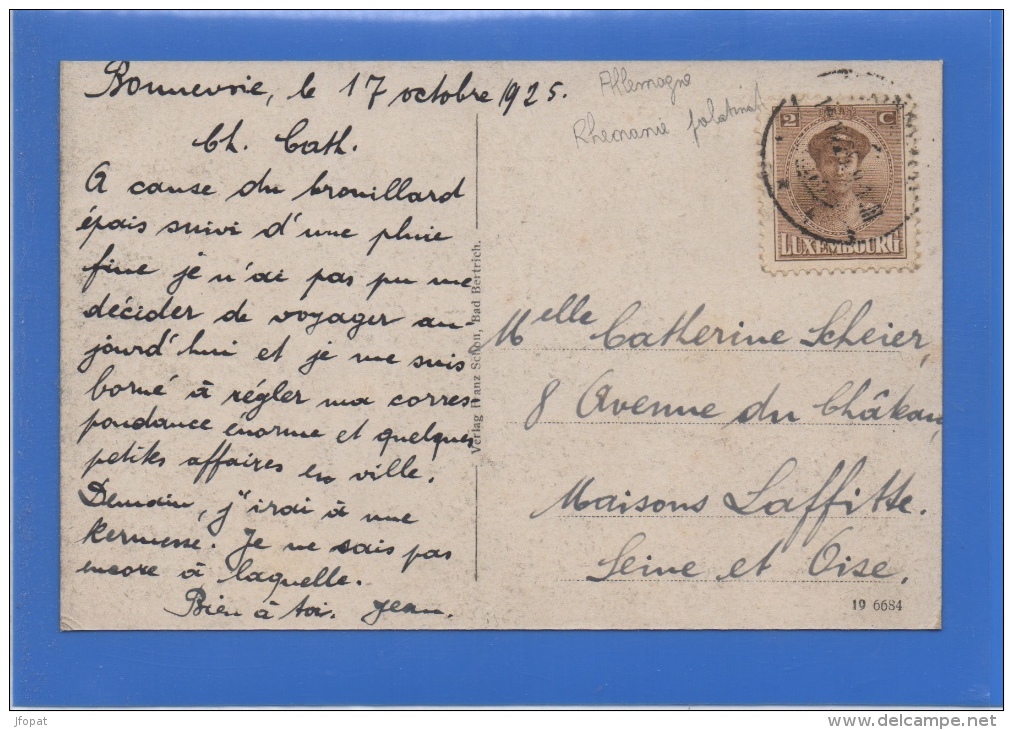 Bonnevoie, le 17 octobre 1925.
Ch. Cath.
A cause du brouillard
épais suivi d'une pluie
fine je n'ai pas pu me
décider de voyager au-
jourd'hui et je me suis
borné à régler ma corres-
pondance énorme et quelques
petites affaires en ville.
Demain, j'irai à une
kermesse. Je ne sais pas
encore à laquelle.
Bien à toi. Jean.
Verlag Franz Schön, Bad Bertrich.
Allemagne
Rhenanie palatinat
2 C
LUXEMBOURG
Melle Catherine Scheier,
8 Avenue du Château,
Maisons Laffitte.
Seine et Oise.
19 6684
jfopat
www.delcampe.net